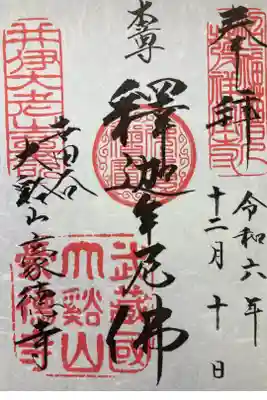 奉拝
令和六年
十二月十日
本尊
釋迦牟尼佛
世田谷
大谿山豪德寺
武蔵國
大谿山
豪德寺